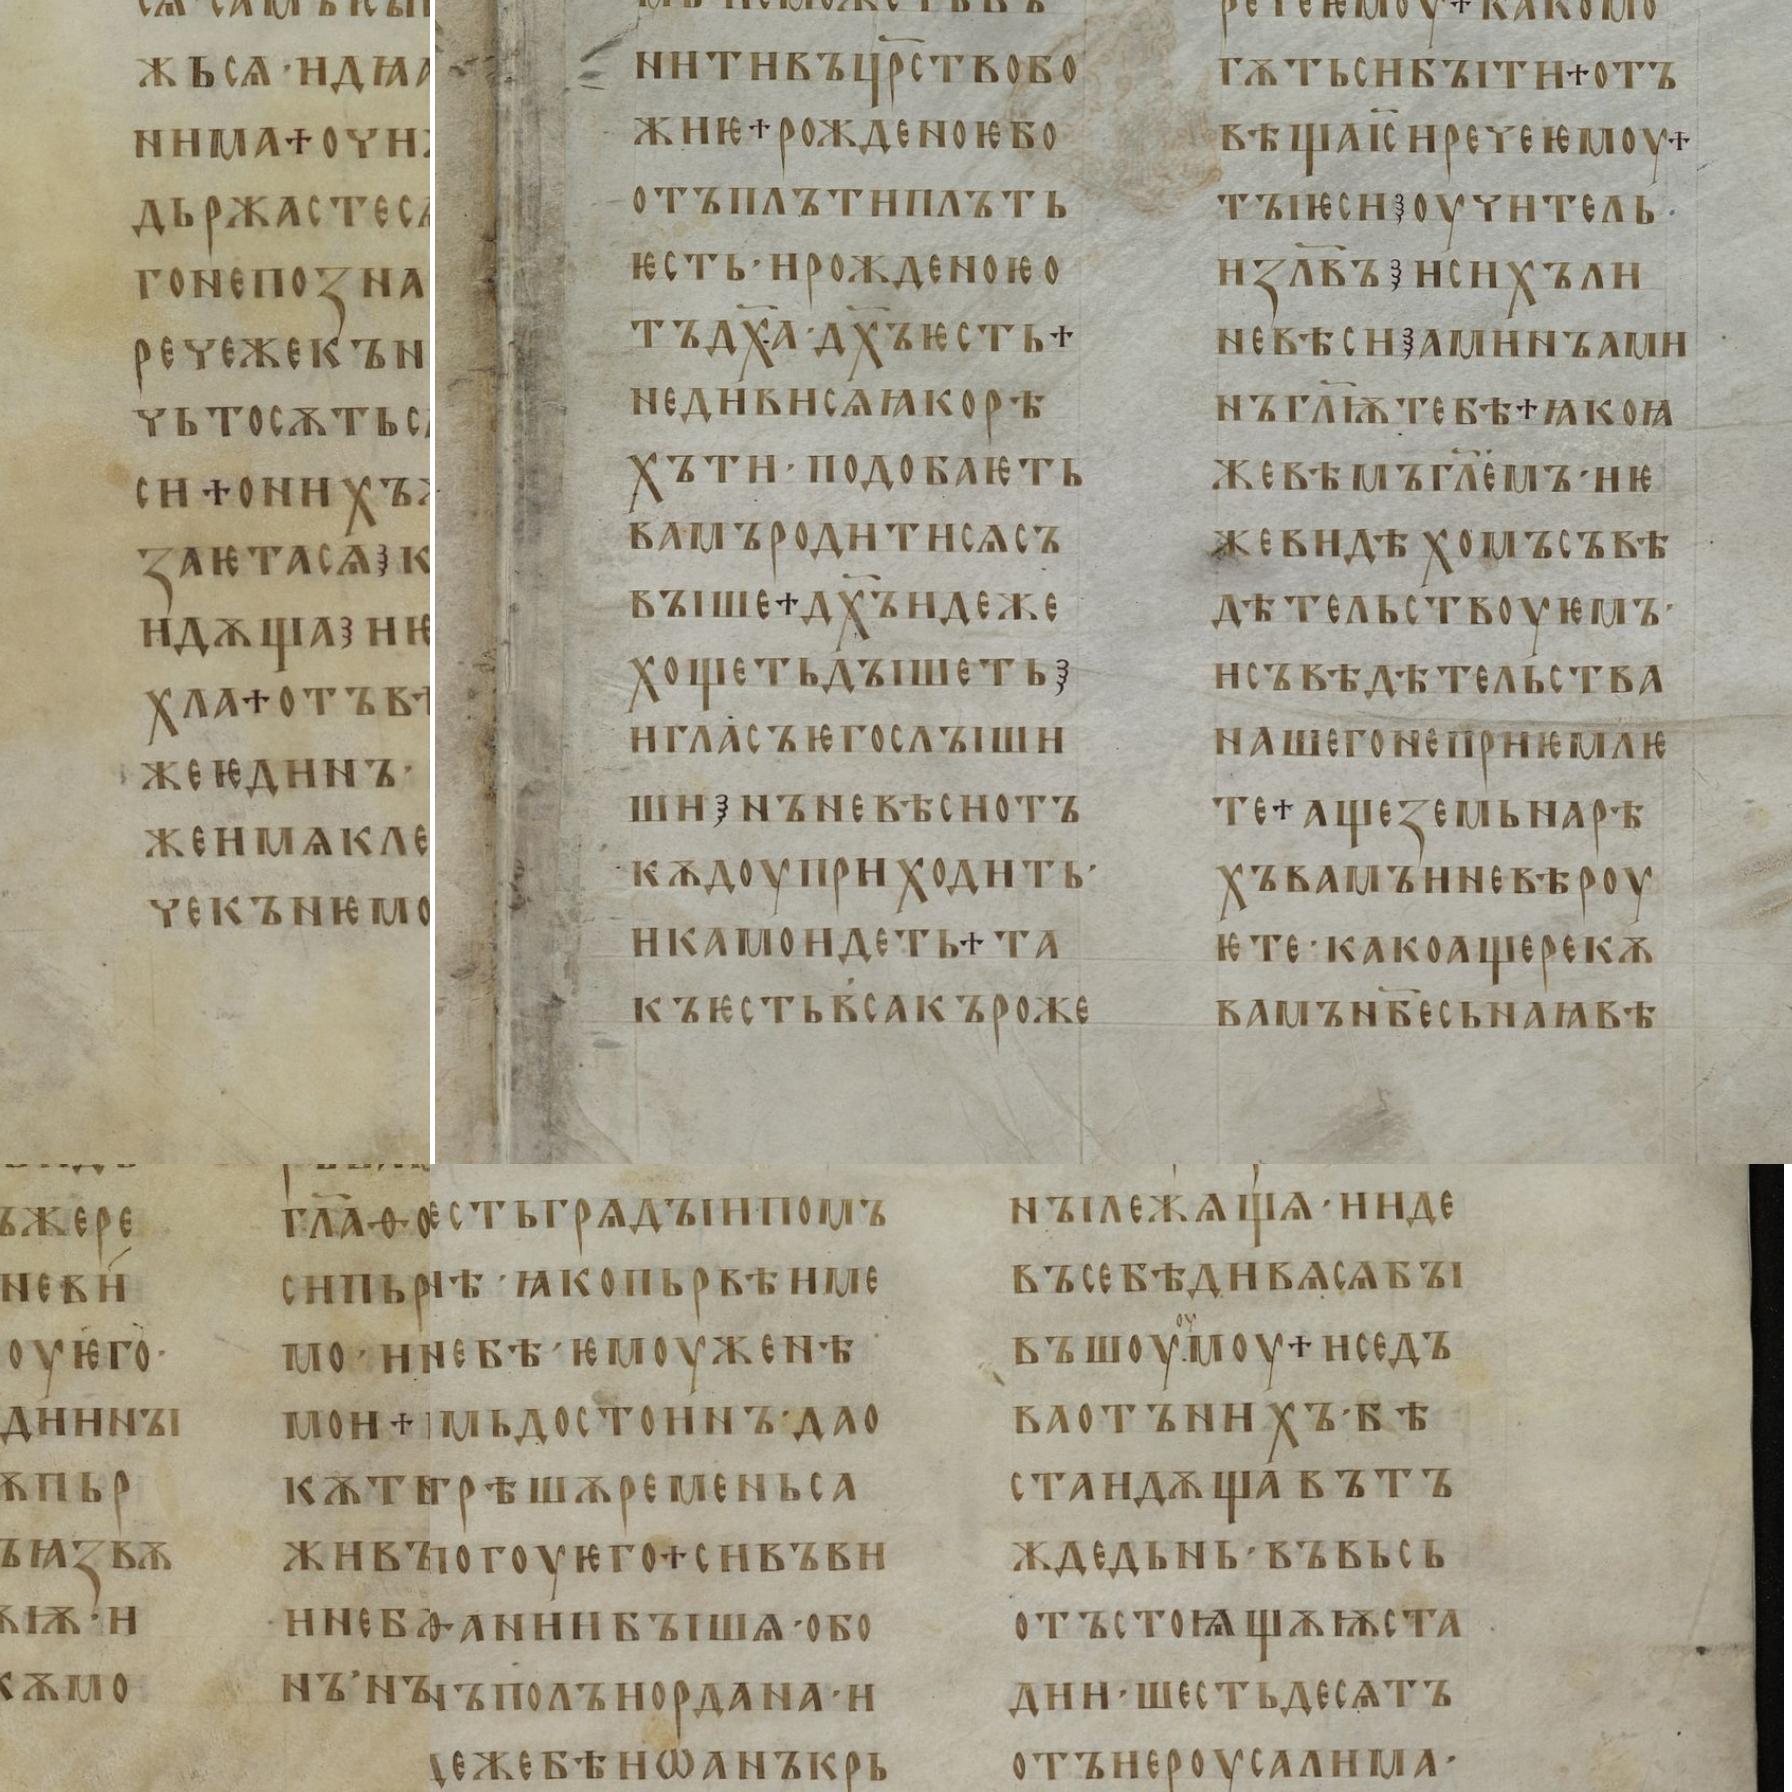 жьсѧ·идꙗ
нима+оучи
дьржастес
гонепозна
речежекън
чьтосѫтьс
си+онихъ
заѥтасѧ꙳к
идѫща꙳ню
хла+отъв
жеѥдинъ·
женимѧкле
чекънѥмо
нитивъцр҃ствобо
жиѥ+рожденоѥбо
отъплътиплъть
ѥсть·ирожденоѥо
тъдх҃а·дх҃ъѥсть+
недивисѧꙗкорѣ
хъти·подобаѥть
вамъродитисѧсъ
въıше+дх҃ъидеже
хощетьдъıшеть꙳
игласъѥгослъıши
ши꙳нъневѣсиотъ
кѫдоуприходить·
икамоидеть+та
къѥстьвсакъроже
речеѥмоу+какомо
гѫтьсибъıти+отъ
вѣщаıс҃иречеѥмоу+
тъıѥси꙳оучитель·
изл҃въ꙳исихъли
невѣси꙳аминъами
нъгл҃ѭтебѣ+ꙗкоꙗ
жевѣмъгл҃емъ·иѥ
жевидѣхомъсъвѣ
дѣтельствоуѥмъ·
исъвѣдѣтельства
нашегонеприѥмлѥ
те+ащеземьнарѣ
хъвамъиневѣроу
ѥте·какоащерекѫ
вамънб҃есьнаꙗвѣ
ъжере
неви
оуѥго·
диннъı
ѫпьр
ъꙗзвѫ
ѫıѭ·и
кѫмо
гл҃аѳо
сипьр
мо·н
мои+
кѫт
живъ
иневл
нъ·нъ
естьградъıинпомъ
нѣ·ꙗкопьрвѣиме
небѣ·ѥмоуженѣ
мьдостоинъ·дао
грѣшѫременьса
погоуѥго+сивъви
ѳаниибъıшѧ·обо
нъполъиорданa·и
дежебѣиѡанъкрь
нъıлежѧщѧ·ииде
въсебѣдивѧсѧбъı
въшоуоумоу+иседъ
ваотънихъ·бѣ
стаидѫщавътъ
ждедьнь·въвьсь
отъстоꙗщѫѭста
дии·шестьдесѧтъ
отъиероусалима·